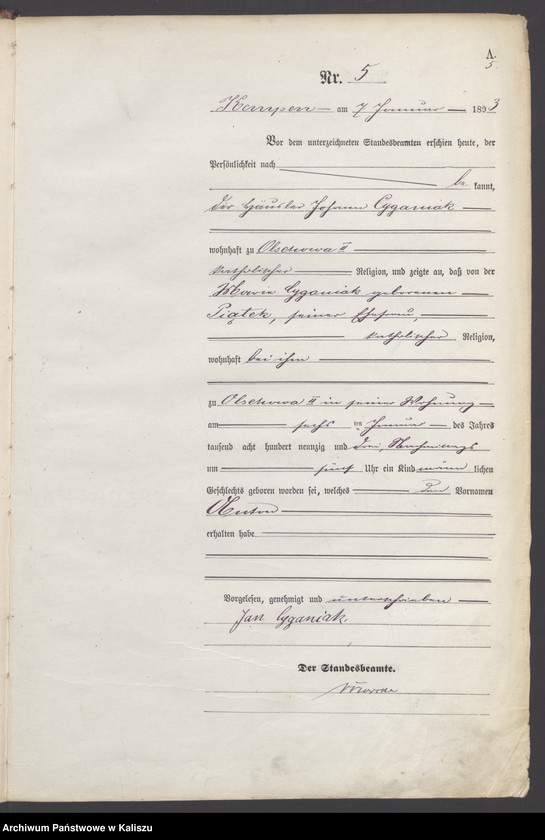 A.
5
Nr. 5
Kempen am 7 Januar 1893
Vor dem unterzeichneten Standesbeamten erschien heute, der
Persönlichkeit nach
be kannt,
der Häusler Johann Cyganiak
wohnhaft zu Olschowa II
katholischer Religion, und zeigte an, daß von der
Marie Cyganiak geborenen
Piątek, seiner Ehefrau,
katholischer Religion,
wohnhaft bei ihm
zu Olschowa II in seiner Wohnung
am sechs ten Januar des Jahres
tausend acht hundert neunzig und drei, Nachmittags
um fünf Uhr ein Kind männ lichen
Geschlechts geboren worden sei, welches den Vornamen
Anton
erhalten habe
Vorgelesen, genehmigt und unterschrieben
Jan Cyganiak.
Der Standesbeamte.
Archiwum Państwowe w Kaliszu